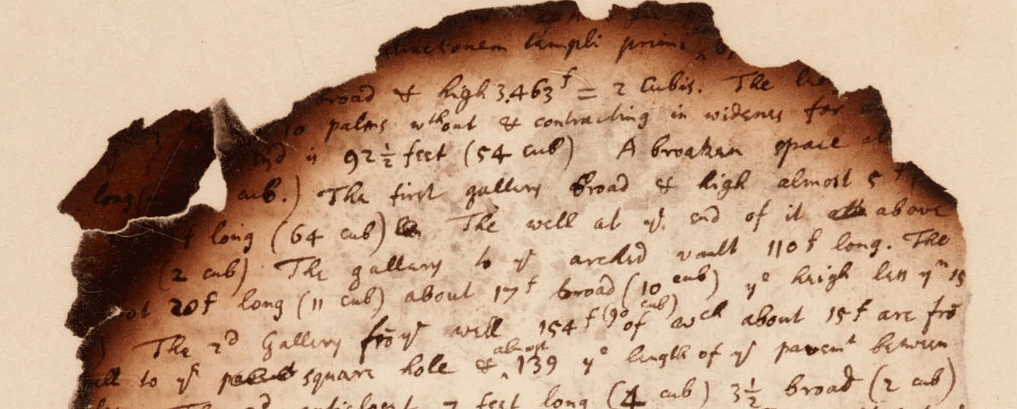 templi primi
broad & high 3.463f = 2 Cubis. The
10 palms wthout & contracting in widenes for
is 92½ feet (54 cub) A broaken space
long cub.) The first gallery broad & high almost 5f
f long (64 cub) The well at ye end of it above
(2 cub) The gallery to ye arched vault 110f long. The
20f long (11 cub) about 17f broad (10 cub) ye heigh less yn 15
The 2d Gallery frō ye well 154f (90 cub) of wch about 15f are frō
to ye square hole & almost 139 ye length of ye pavemt between
feet long (4 cub) 3½ broad (2 cub)